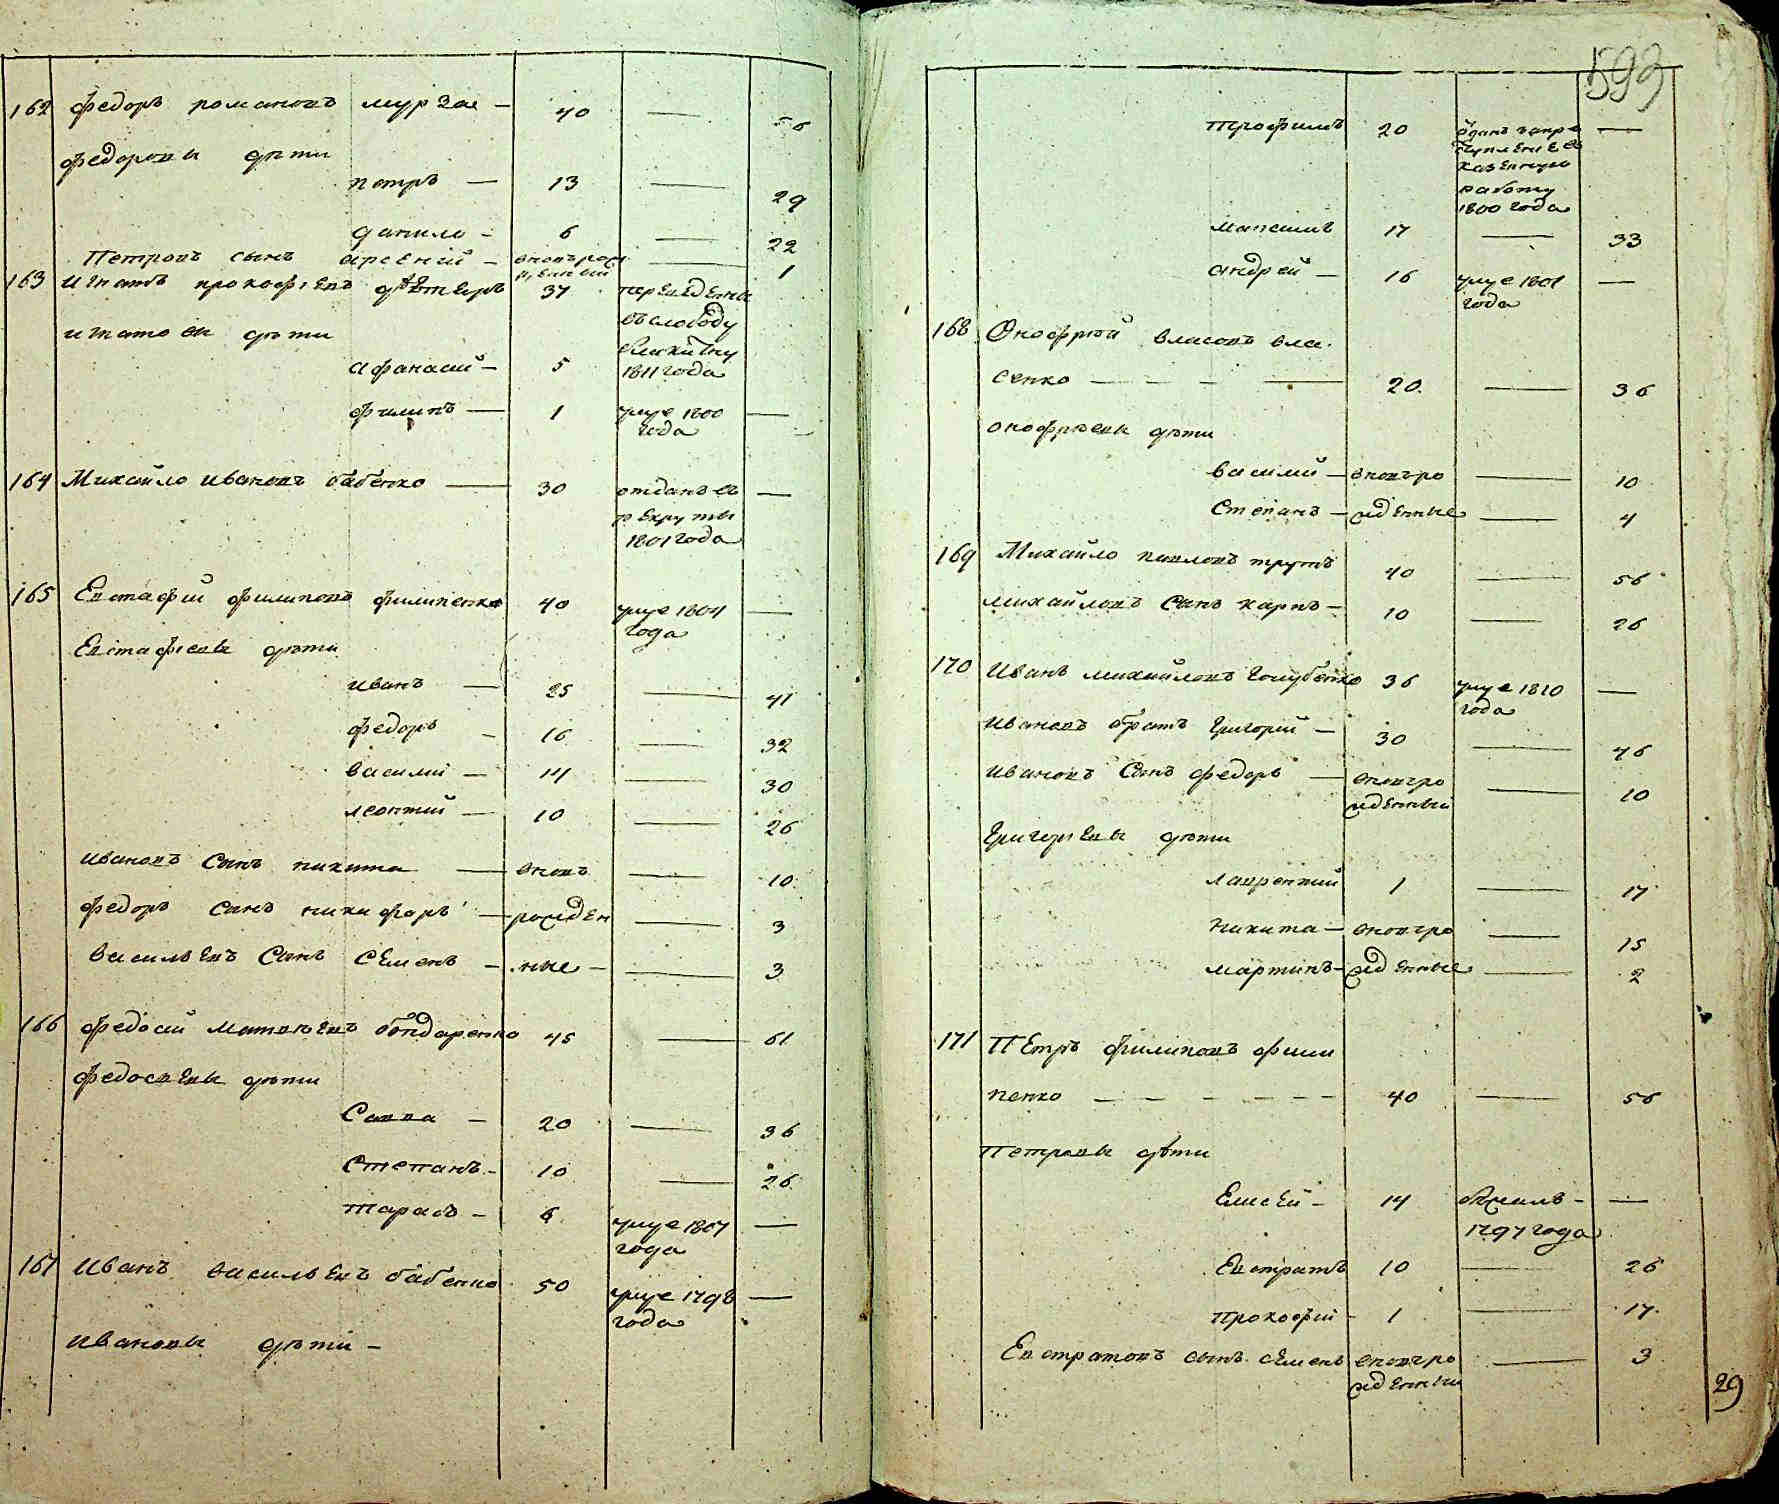 162 Федоръ романовъ мурза — 40 — 56
Федоровы дѣти
петръ — 13 — 29
данило — 6 — 22
Петровъ сынъ арсений — вновърож — 1
денный
163 Игнатъ прокофіевъ 37 переведены
игнатовы дѣти въ слободу
афанасий — 5
1811 года
филипъ — 1 умре 1800 —
года
164 Михайло ивановъ бабенко — 30 отданъ въ —
рекруты
1801 года
165 Евстафий филиповъ филипенко 40 умре 1804 —
года
Евстафіевы дѣти
иванъ — 25 — 41
федоръ — 16 — 32
василий — 14 — 30
леонтий — 10 — 26
ивановъ сынъ никита — вновь — 10
федоръ сынъ никифоръ — рожден — 3
васильевъ сынъ семенъ — ные — 3
166 Федосий матвѣевъ бондаренко 45 — 61
федосѣевы дѣти
Савва — 20 — 36
степанъ — 10 — 26
тарасъ — 6 умре 1807 —
года
167 Иванъ васильевъ бабенко 50 умре 1798 —
года
ивановы дѣти —
593
трофимъ 20 —
казенную
работу
1800 года
максимъ 17 — 33
андрей — 16 умре 1801 —
года
168 Онофрий власовъ вла
сенко — 20 — 36
онофріевы дѣти
василий — вновъро — 10
степанъ — жденные — 4
169 Михайло павловъ трутъ 40 — 56
михайловъ сынъ карпъ — 10 — 26
170 Иванъ михайловъ голубенко 36 умре 1810 —
года
ивановъ братъ григорий — 30 — 46
ивановъ сынъ федоръ — вновъро — 10
жденный
григоріевы дѣти
лаврентий 1 — 17
никита — вновъро — 15
мартинъ — жденные — 2
171 Петръ филиповъ фили
пенко — 40 — 56
Петровы дѣти
Елисей — 14 бѣжалъ — —
1797 года
Евстратъ 10 — 26
прокофий — 1 — 17
Евстратовъ сынъ семенъ вновъро — 3
жденный
29